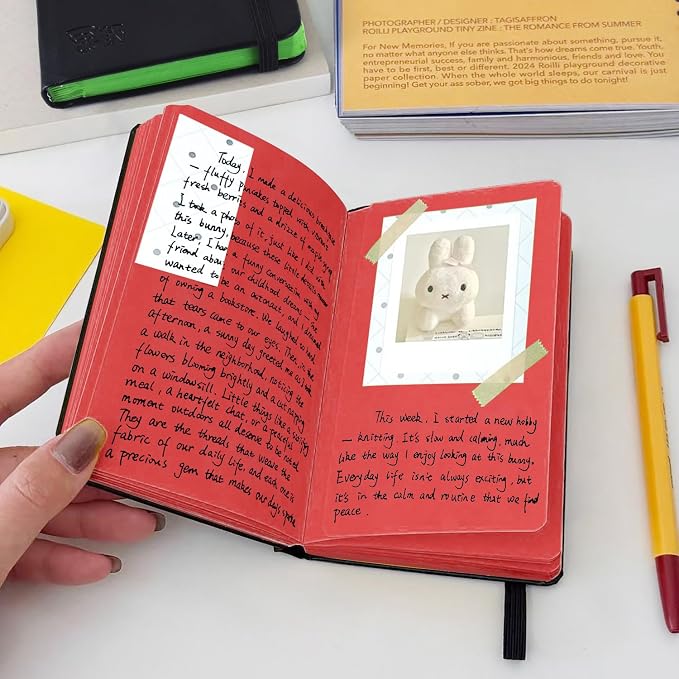 PHOTOGRAPHER / DESIGNER : TAGISAFFRON
ROILLI PLAYGROUND TINY ZINE : THE ROMANCE FROM SUMMER
For New Memories, If you are passionate about something, pursue it,
no matter what anyone else thinks. That's how dreams come true. Youth,
entrepreneurial success, family and harmonious, friends and love. You
have to be first, best or different. 2024 Roilli playground decorative
paper collection. When the whole world sleeps, our carnival is just
beginning! Get your ass sober, we got big things to do tonight!
Today, I made a delicious breakfast
— fluffy pancakes topped with vibrant
fresh berries and a drizzle of maple syrup.
I took a photo of it, just like I did with
this bunny, because those little details
Later, I had a funny conversation with my
friend about our childhood dreams — he
wanted to be an astronaut, and I dreamed
of owning a bookstore. We laughed so hard
that tears came to our eyes. Then, in the
afternoon, a sunny day greeted me as I took
a walk in the neighborhood, noticing the
flowers blooming brightly and a cat napping
on a windowsill. Little things like a satisfying
meal, a heartfelt chat, or a peaceful
moment outdoors all deserve to be noted.
They are the threads that weave the
fabric of our daily life, and each one is
a precious gem that makes our days
This week, I started a new hobby
— knitting. It's slow and calming, much
like the way I enjoy looking at this bunny.
Everyday life isn't always exciting, but
it's in the calm and routine that we find
peace.